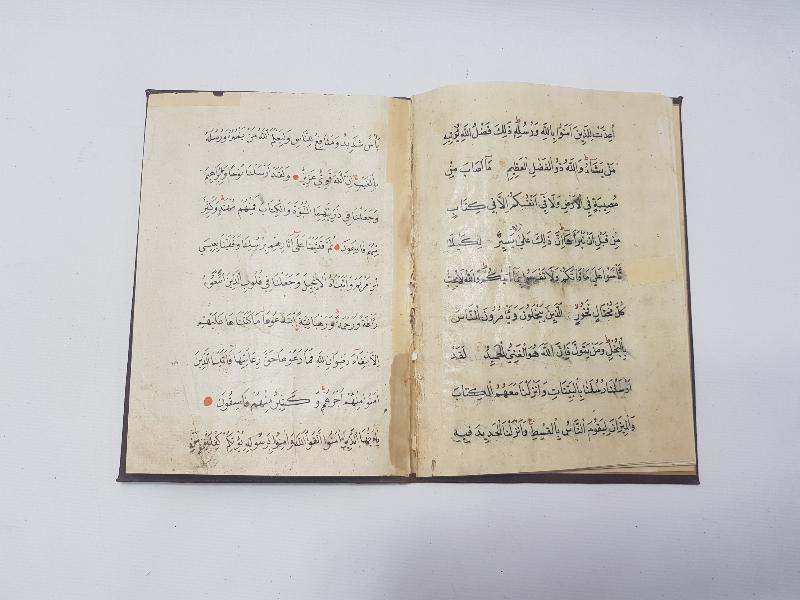 أعدت للذين آمنوا بالله ورسله ذلك فضل الله يؤتيه
من يشاء والله ذو الفضل العظيم ما أصاب من
مصيبة في الأرض ولا في أنفسكم إلا في كتاب
من قبل أن نبرأها إن ذلك على الله يسير لكيلا
تأسوا على ما فاتكم ولا تفرحوا بما آتيكم والله لا يحب
كل مختال فخور الذين يبخلون ويأمرون الناس
بالبخل ومن يتول فإن الله هو الغني الحميد لقد
أرسلنا رسلنا بالبينات وأنزلنا معهم الكتاب
والميزان ليقوم الناس بالقسط وأنزلنا الحديد فيه
بأس شديد ومنافع للناس وليعلم الله من ينصره ورسله
بالغيب إن الله قوي عزيز ولقد أرسلنا نوحا وإبراهيم
وجعلنا في ذريتهما النبوة والكتاب فمنهم مهتد وكثير
منهم فاسقون ثم قفينا على آثارهم برسلنا وقفينا بعيسى
ابن مريم وآتيناه الإنجيل وجعلنا في قلوب الذين اتبعوه
رأفة ورحمة ورهبانية ابتدعوها ما كتبناها عليهم
إلا ابتغاء رضوان الله فما رعوها حق رعايتها فآتينا الذين
آمنوا منهم أجرهم وكثير منهم فاسقون
يا أيها الذين آمنوا اتقوا الله وآمنوا برسوله يؤتكم كفلين من